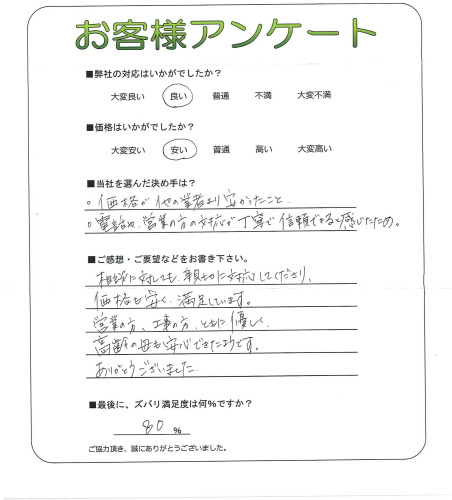 お客様アンケート
■弊社の対応はいかがでしたか？
大変良い 良い 普通 不満 大変不満
■価格はいかがでしたか？
大変安い 安い 普通 高い 大変高い
■当社を選んだ決め手は？
○価格が他の業者より安かったこと
○電話や、営業の方の対応が丁寧で信頼できると感じたため。
■ご感想・ご要望などをお書き下さい。
相談に対しても、親切に対応してくださり、
価格も安く、満足しています。
営業の方、工事の方、ともに優しく、
高齢の母も安心できたようです。
ありがとうございました。
■最後に、ズバリ満足度は何％ですか？
80 ％
ご協力頂き、誠にありがとうございました。